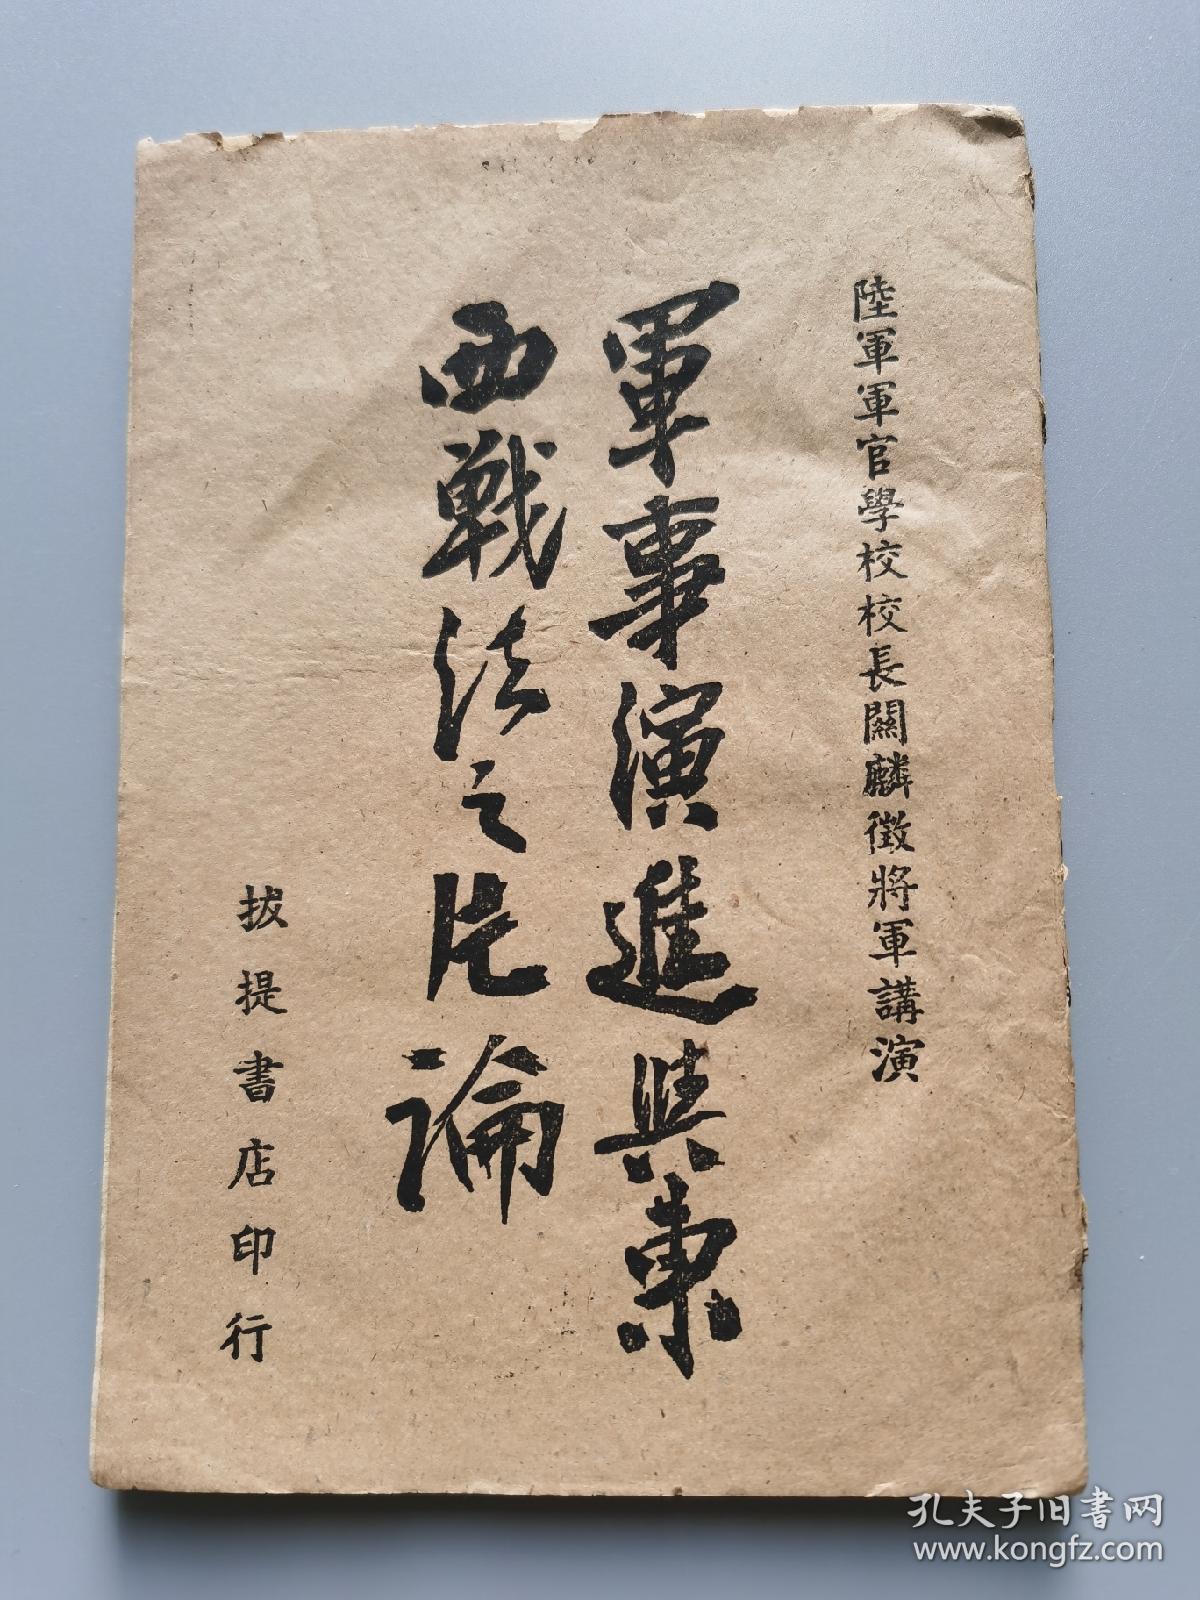 陸軍軍官學校校長關麟徵將軍講演
軍事演進與東
西戰法之片論
拔提書店印行
孔夫子旧书网
www.kongfz.com